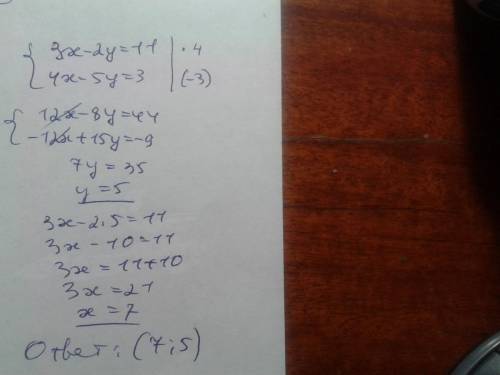 3x-2y=11 | · 4
4x-5y=3 | (-3)
12x-8y=44
-12x+15y=-9
7y=35
y=5
3x-2·5=11
3x-10=11
3x=11+10
3x=21
x=7
Ответ: (7;5)